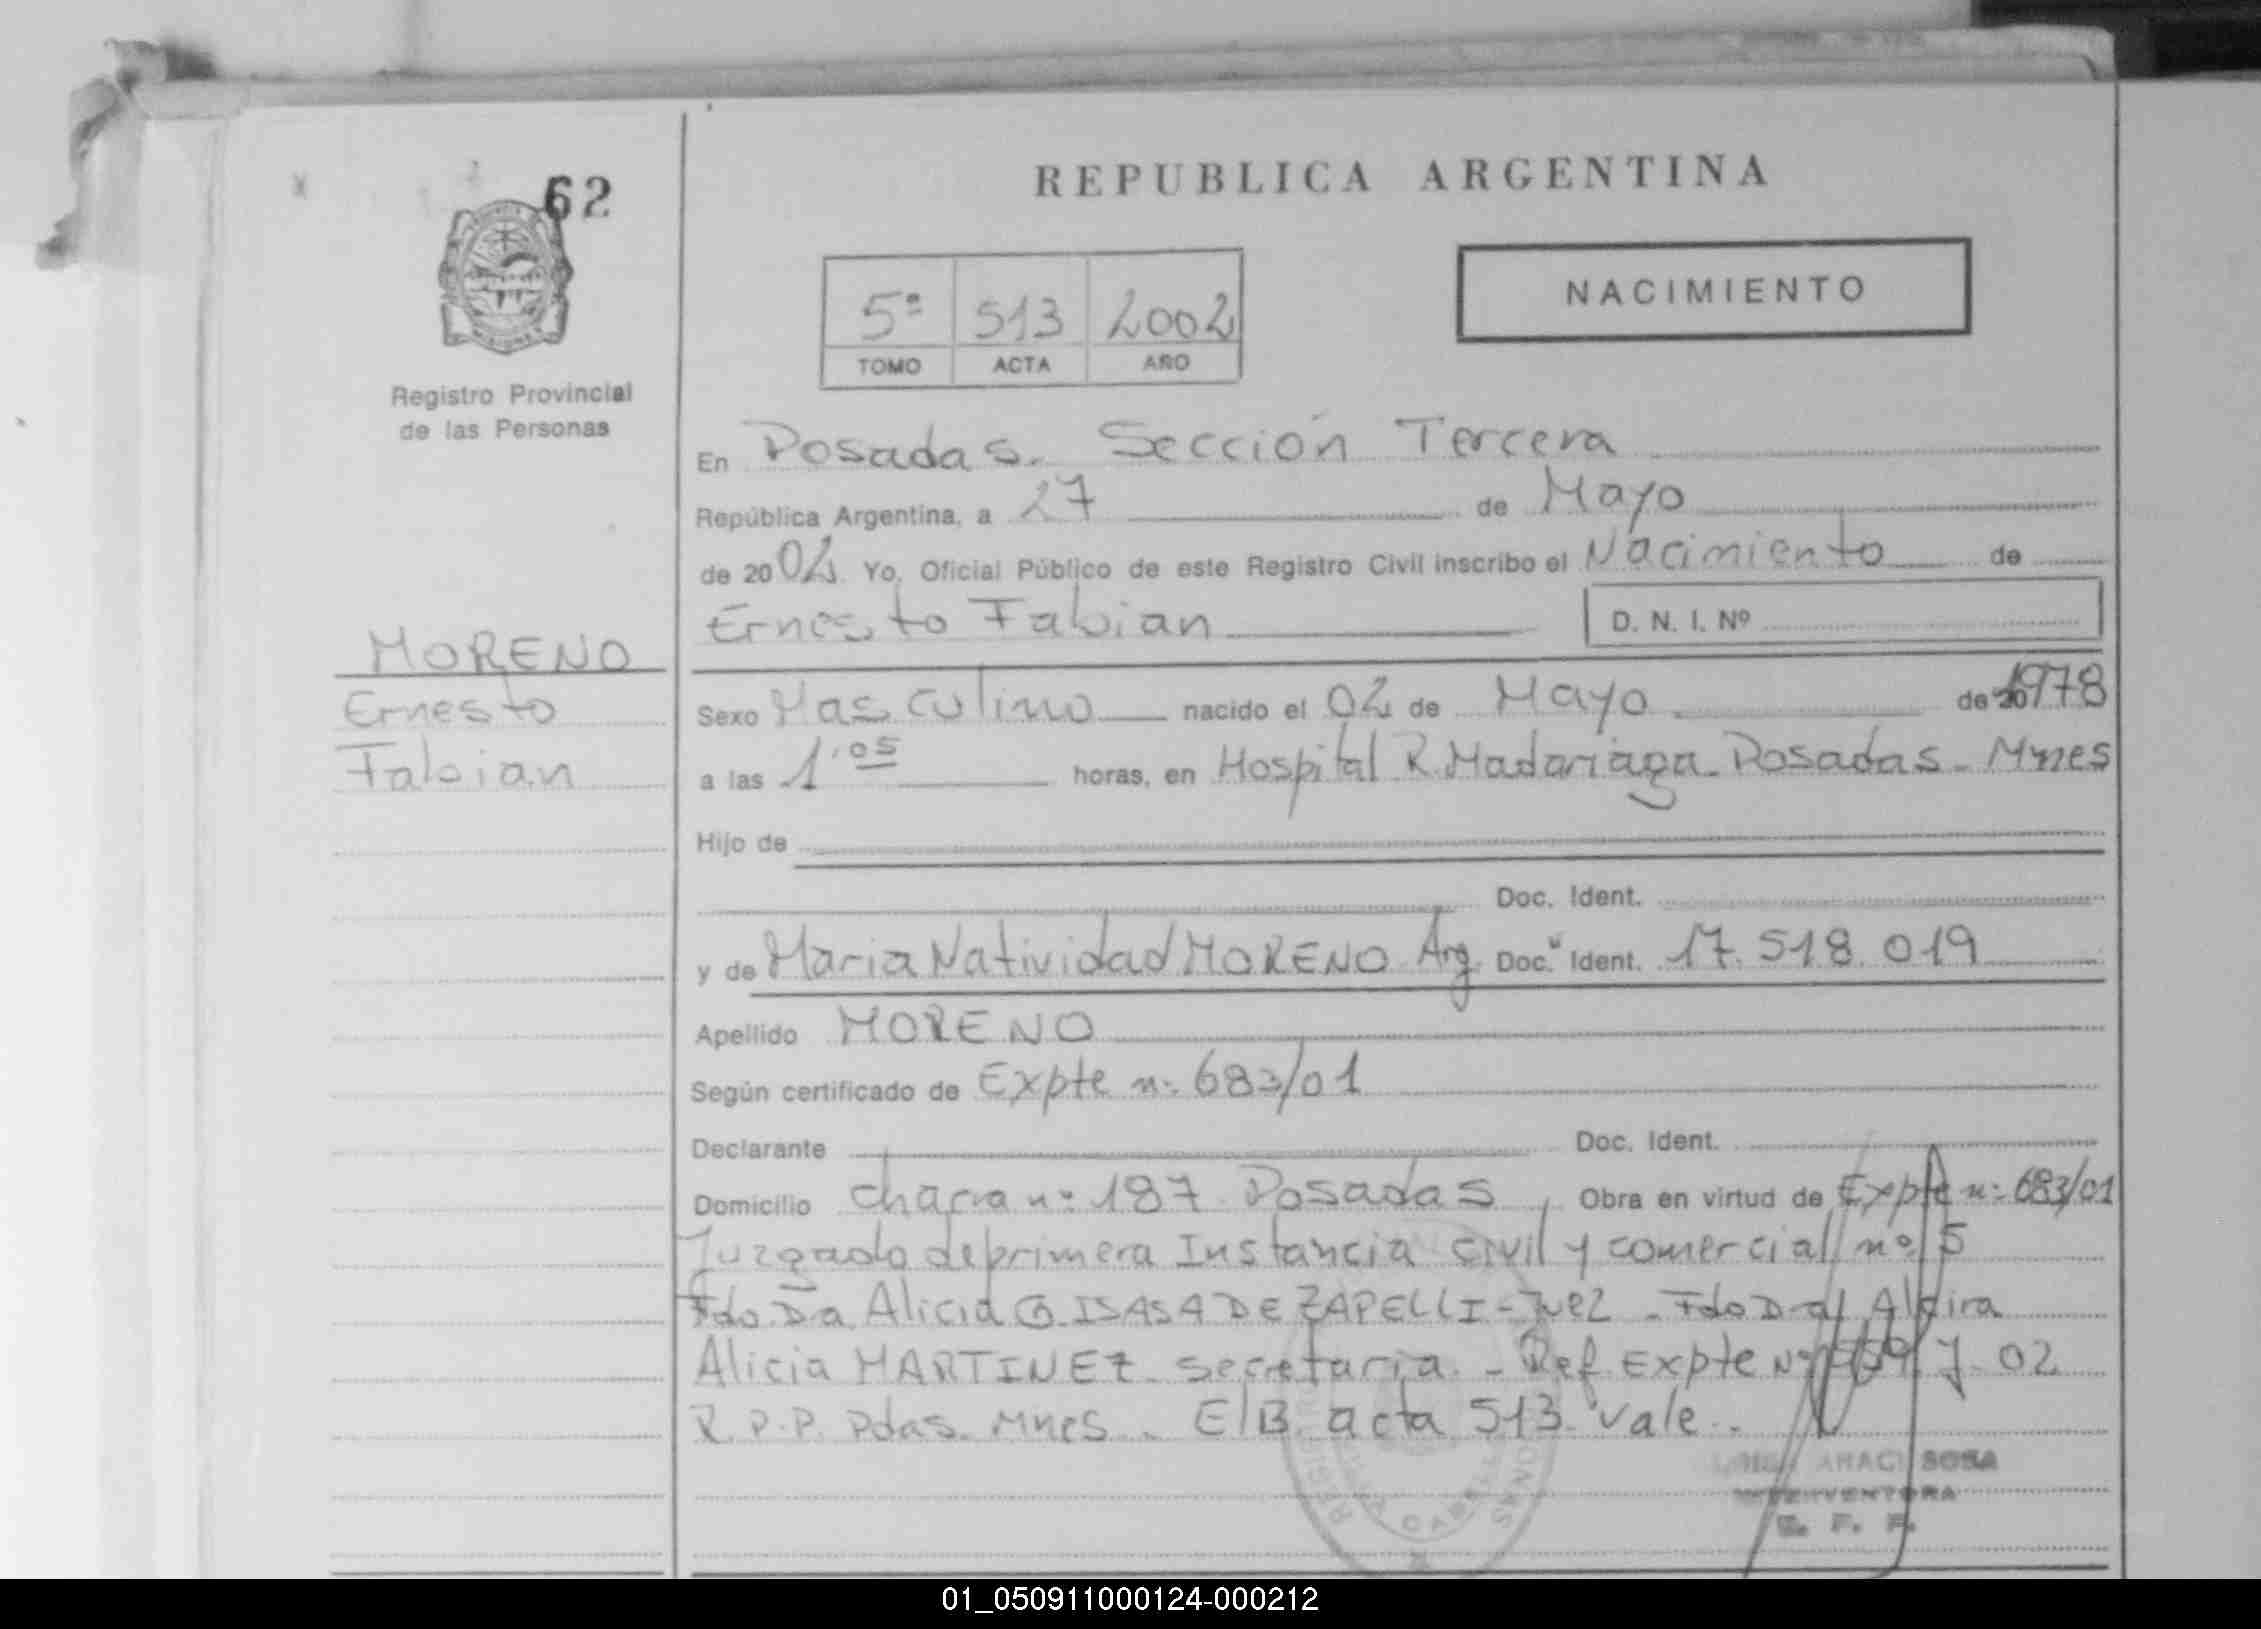 62
REPUBLICA ARGENTINA
NACIMIENTO
5ª 513 2002
TOMO ACTA AÑO
Registro Provincial
de las Personas
En Posadas. Sección Tercera
República Argentina, a 27 de Mayo
de 2002 Yo, Oficial Público de este Registro Civil inscribo el Nacimiento de
Ernesto Fabian D. N. I. Nº
MORENO
Ernesto
Fabian
Sexo Masculino nacido el 02 de Mayo de 1978
a las 1.05 horas, en Hospital R. Madariaga - Posadas - Mnes
Hijo de
Doc. Ident.
y de Maria Natividad MORENO Arg. Doc. Ident. 17.518.019
Apellido MORENO
Según certificado de Expte nº 683/01
Declarante Doc. Ident.
Domicilio chacra nº 187 Posadas Obra en virtud de Expte nº 683/01
Juzgado de primera Instancia civil y comercial nº 5
Fdo. Dra. Alicia G. ISASA DE ZAPELLI - Juez - Fdo Dra Aldira
Alicia MARTINEZ secretaria. - Ref Expte Nº J-02
R.P.P. Pdas. Mnes - E/B. acta 513. Vale.-
ARACI SOSA
INTERVENTORA
01_050911000124-000212